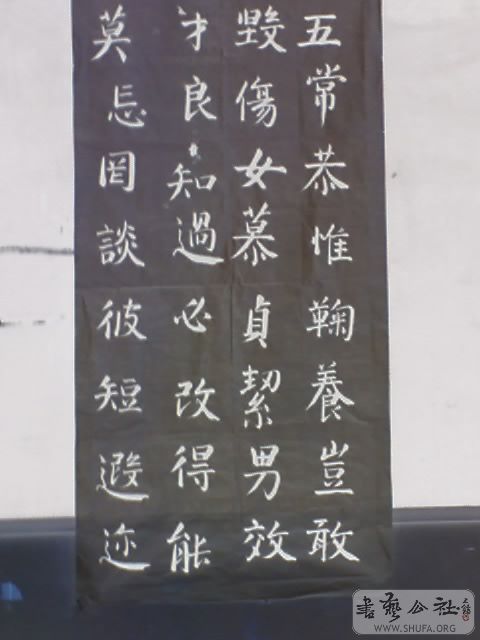 五常恭惟鞠養豈敢
毀傷女慕貞絜男效
才良知過必改得能
莫忘罔談彼短遐迩
書藝公社
WWW.SHUFA.ORG